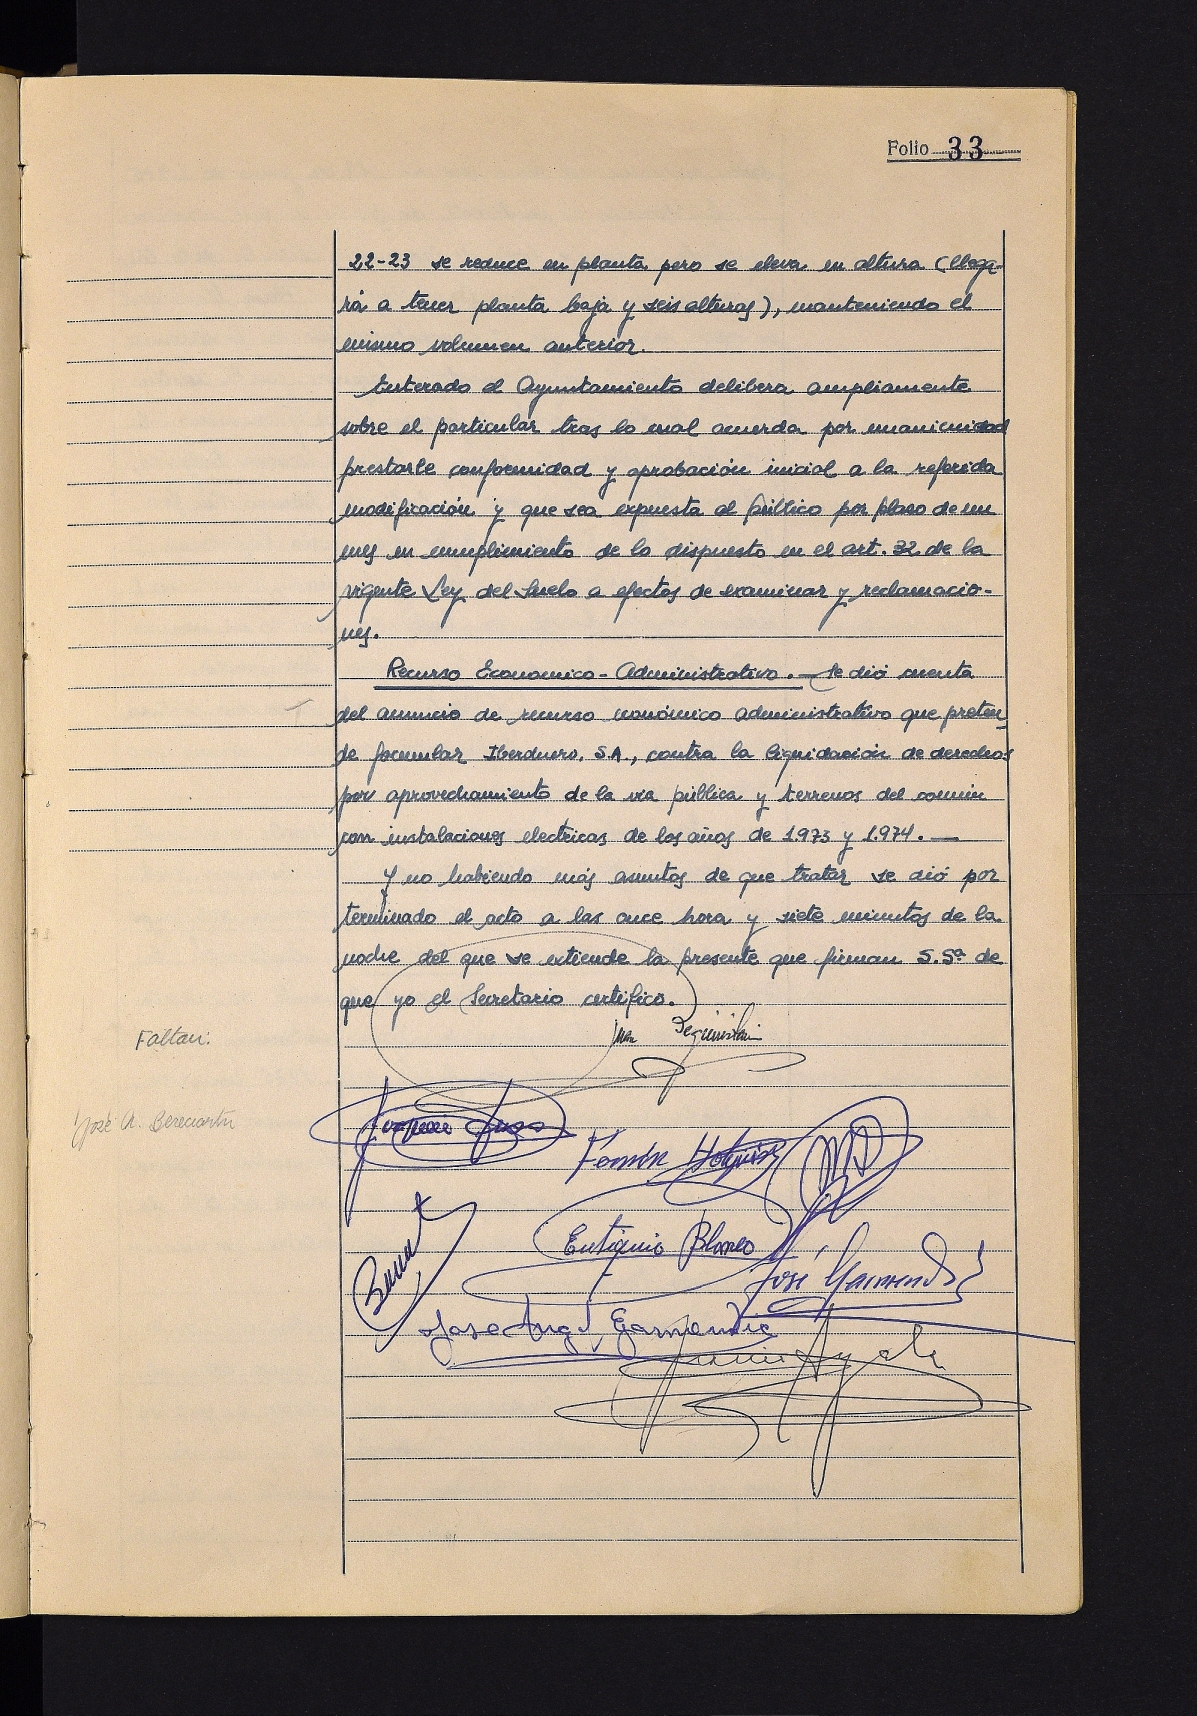 Folio 33
22-23 se reduce en planta pero se eleva en altura (llega-
rá a tener planta baja y seis alturas), manteniendo el
mismo volumen anterior.
Enterado el Ayuntamiento delibera ampliamente
sobre el particular tras lo cual acuerda por unanimidad
prestarle conformidad y aprobación inicial a la referida
modificación y que sea expuesta al público por plazo de un
mes en cumplimiento de lo dispuesto en el art. 32 de la
vigente Ley del Suelo a efectos de examinar y reclamacio-
nes.
Recurso Economico-Administrativo.- Se dió cuenta
del anuncio de recurso económico administrativo que preten
de formular Iberduero, S.A., contra la liquidación de derechos
por aprovechamiento de la via pública y terrenos del común
con instalaciones electricas de los años de 1.973 y 1.974. —
Y no habiendo más asuntos de que tratar se dió por
terminado el acto a las once hora y siete minutos de la
noche del que se extiende la presente que firman S.Sª de
que yo el Secretario certifico.
Faltan:
José A. Bereciartu
Fermín
Eutiquio Blanco
José Garmendi
Jose Angel Garmendia
Ayala